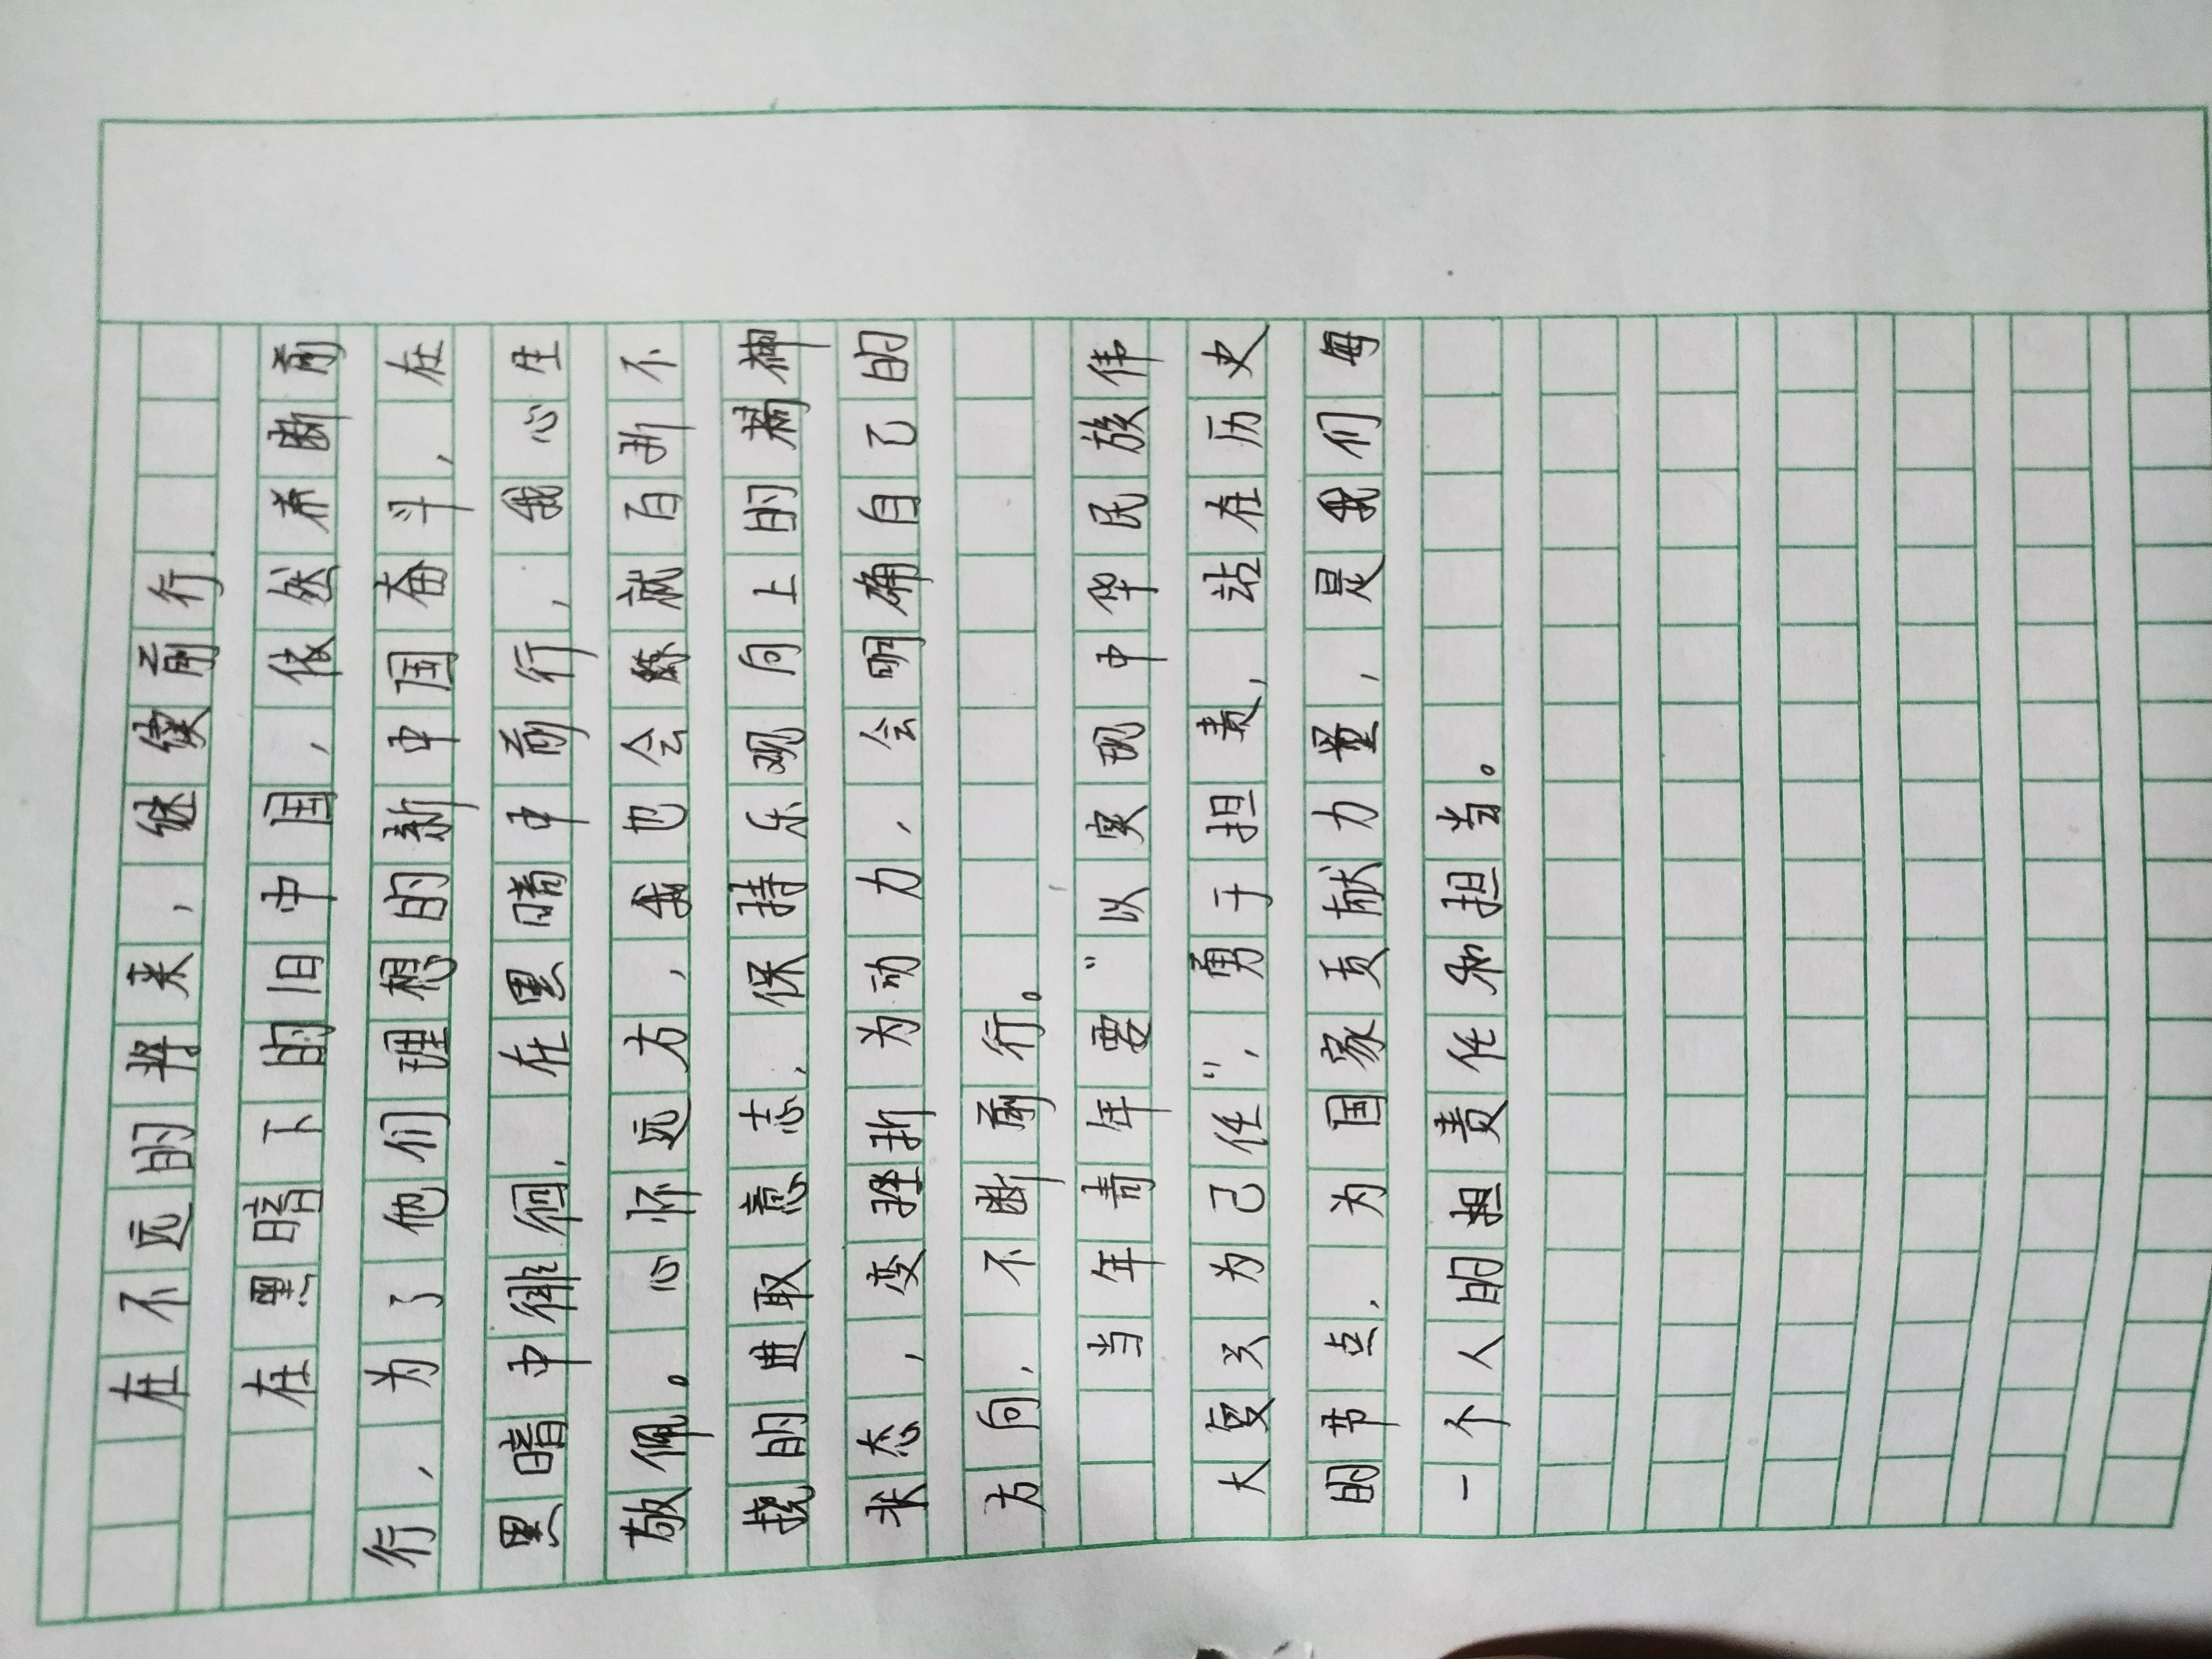 在不远的将来，继续前行
在黑暗下的旧中国，依然奔断前
行，为了他们理想的新中国奋斗，在
黑暗中徘徊，在黑暗中前行，我心生
敬佩。心怀远方，我也会练就百折不
挠的进取意志，保持乐观向上的精神
状态，变挫折为动力，会明确自己的
方向，不断前行。
当年青年要“以实现中华民族伟
大复兴为己任”，勇于担责，站在历史
的节点，为国家贡献力量，是我们每
一个人的担责任和担当。